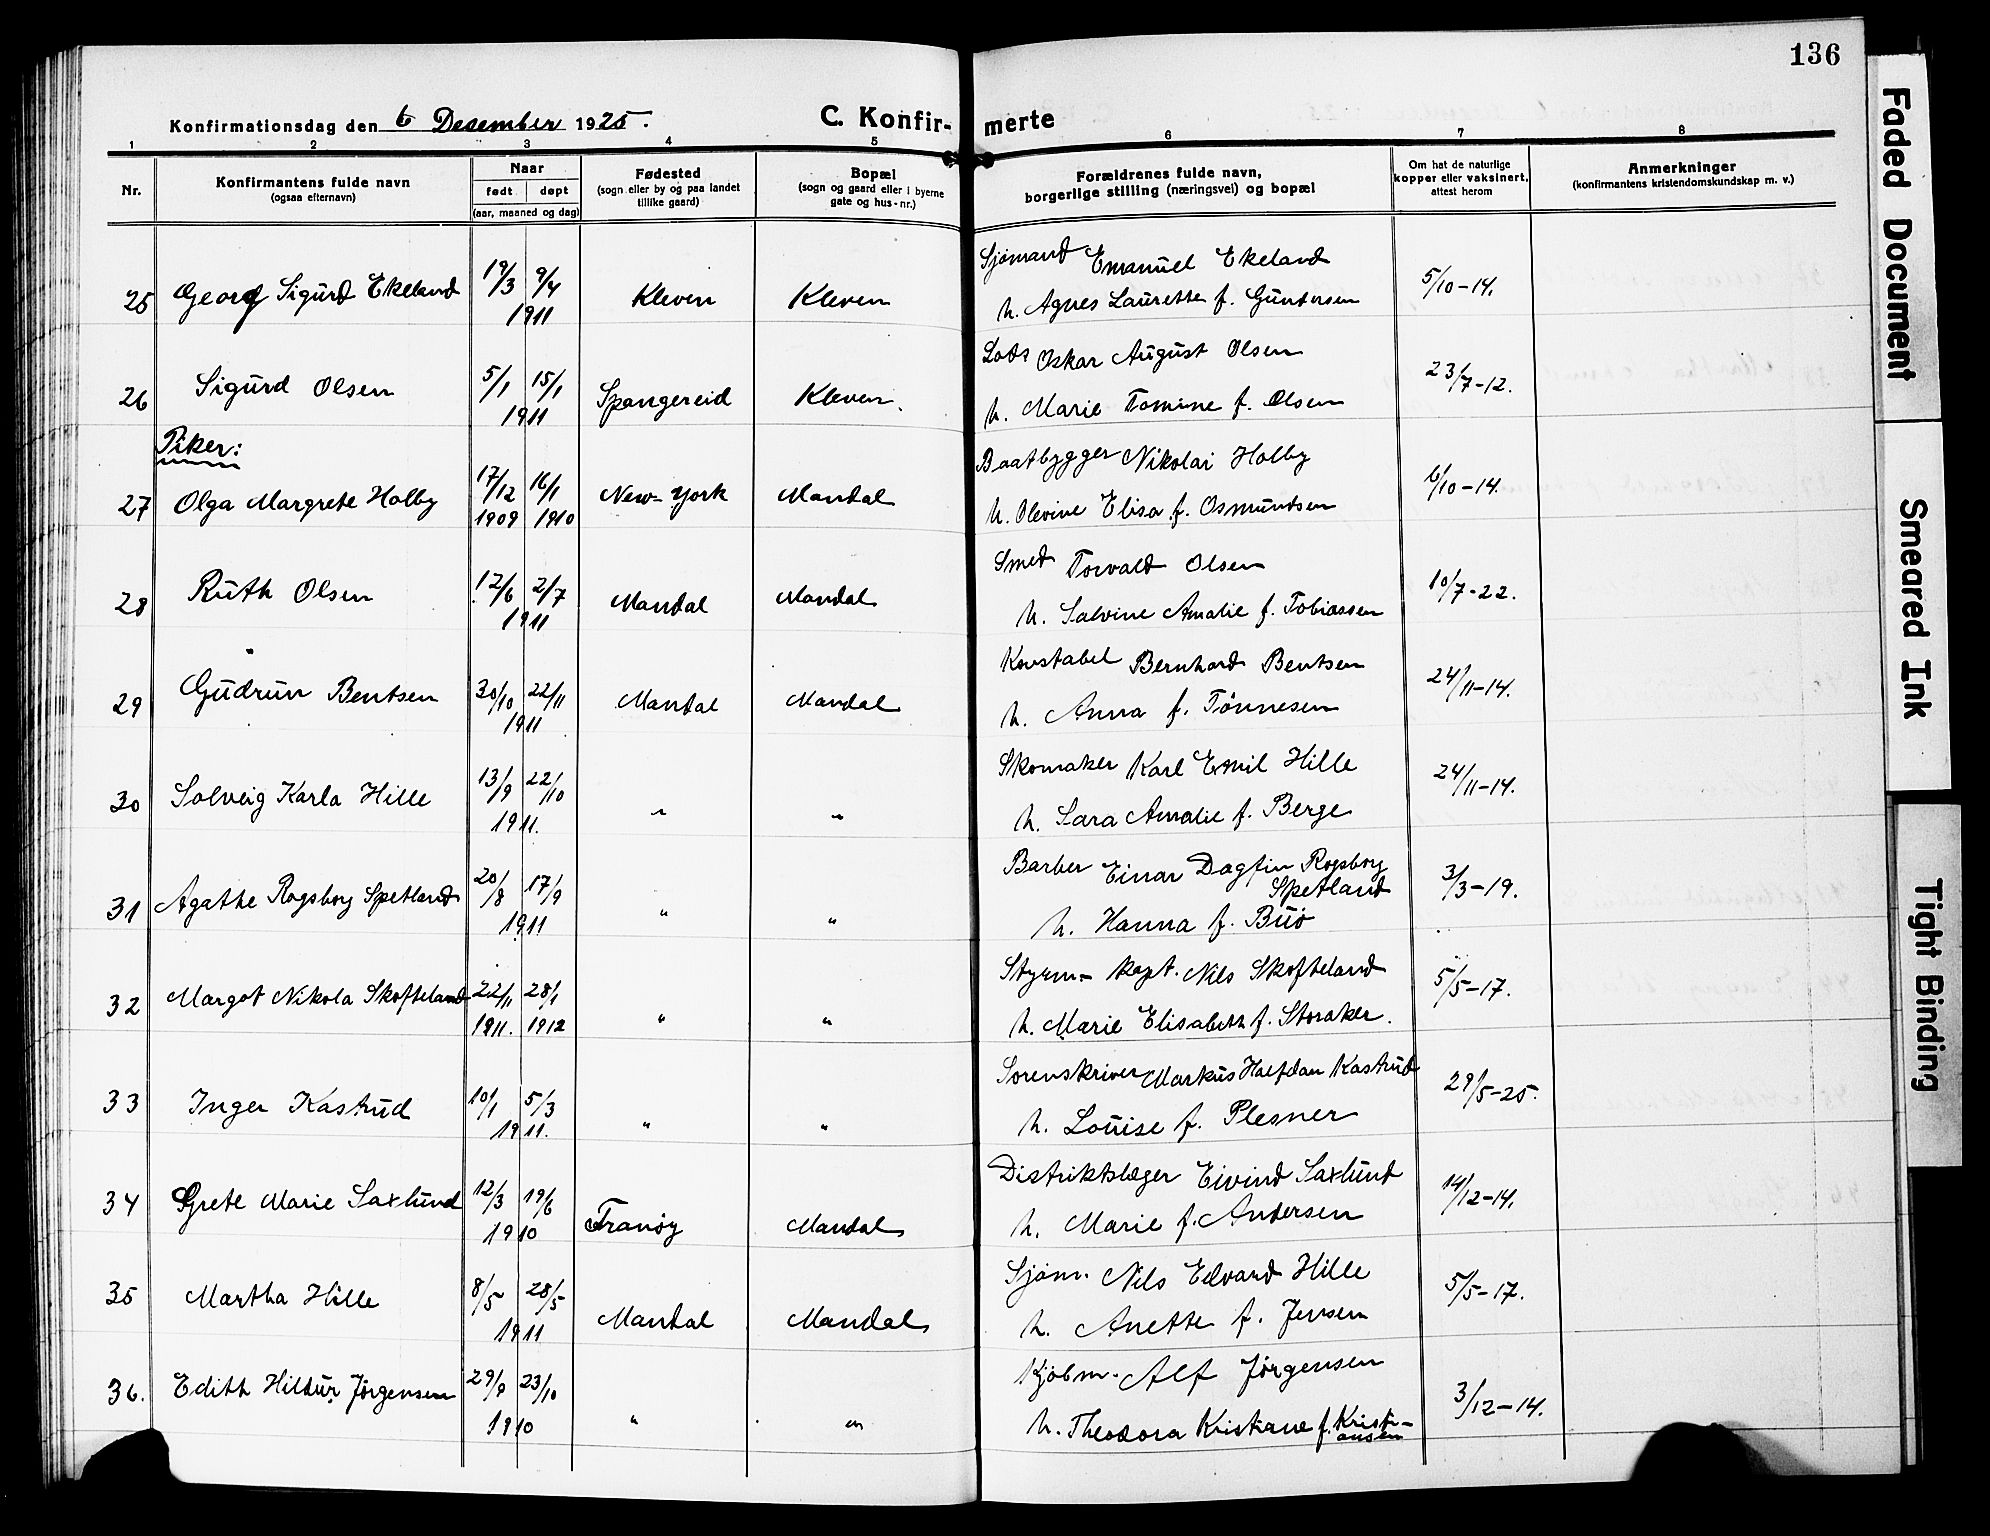 136
Konfirmationsdag den 6 Desember 1925.
C. Konfirmerte
1 2 3 4 5 6 7 8
Nr.
Konfirmantens fulde navn
(ogsaa efternavn)
Naar
født døpt
(aar, maaned og dag)
Fødested
(sogn eller by og paa landet
tillike gaard)
Bopæl
(sogn og gaard eller i byerne
gate og hus-nr.)
Forældrenes fulde navn,
borgerlige stilling (næringsvei) og bopæl
Om hat de naturlige
kopper eller vaksinert,
attest herom
Anmerkninger
(konfirmantens kristendomskundskap m. v.)
25 Georg Sigurd Ekeland 19/3 9/4 1911 Kleven Kleven
Sjømand Emanuel Ekeland
h. Agnes Laurette f. Gundersen
5/10-14.
26 Sigurd Olsen 5/1 15/1 1911 Spangereid Kleven.
Lods Oskar August Olsen
h. Marie Tomine f. Olsen
23/7-12.
Piker:
27 Olga Margrete Holby 17/12 1909 16/1 1910 New-York Mandal
Baatbygger Nikolai Holby
h. Olevine Elisa f. Osmundsen
6/10-14.
28 Ruth Olsen 12/6 2/7 1911 Mandal Mandal
Smed Torvald Olsen
h. Salvine Amalie f. Tobiassen
10/7-22.
29 Gudrun Bentsen 30/10 22/11 1911 Mandal Mandal
Konstabel Bernhard Bentsen
h. Anna f. Tønnesen
24/11-14.
30 Solveig Karla Hille 13/9 22/10 1911. " "
Skomaker Karl Emil Hille
h. Sara Amalie f. Berge
24/11-14.
31 Agathe Rogsborg Spetland 20/8 17/9 1911 " "
Barber Einar Dagfin Rogsborg
Spetland
h. Hanna f. Buø
3/3-19.
32 Margot Nikola Skofteland 22/11 1911. 28/1 1912 " "
Styrm- kapt. Nils Skofteland
h. Marie Elisabeth f. Storaker.
5/5-17.
33 Inger Kastrud 10/1 5/3 1911. " "
Sorenskriver Markus Halfdan Kastrud
h. Louise f. Plesner
29/5-25.
34 Grete Marie Saxlund 12/3 19/6 1910 Tranøy Mandal
Distriktslæger Eivind Saxlund
h. Marie f. Andersen
14/12-14.
35 Martha Hille 8/5 28/5 1911 Mandal Mandal
Sjøm. Nils Edvard Hille
h. Anette f. Jensen
5/5-17.
36. Edith Hildur Jørgensen 29/9 23/10 1910 " "
Kjøbm. Alf Jørgensen
h. Theodora Kristiane f. Kristi-
ansen
3/12-14.
Faded Document
Smeared Ink
Tight Binding